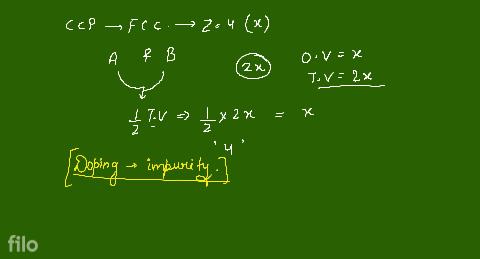 CCP → FCC → Z=4 (x)
A & B
2x
O.V = x
T.V = 2x
1/2 T.V ⇒ 1/2 × 2x = x
'4'
[Doping → impurity.]
filo